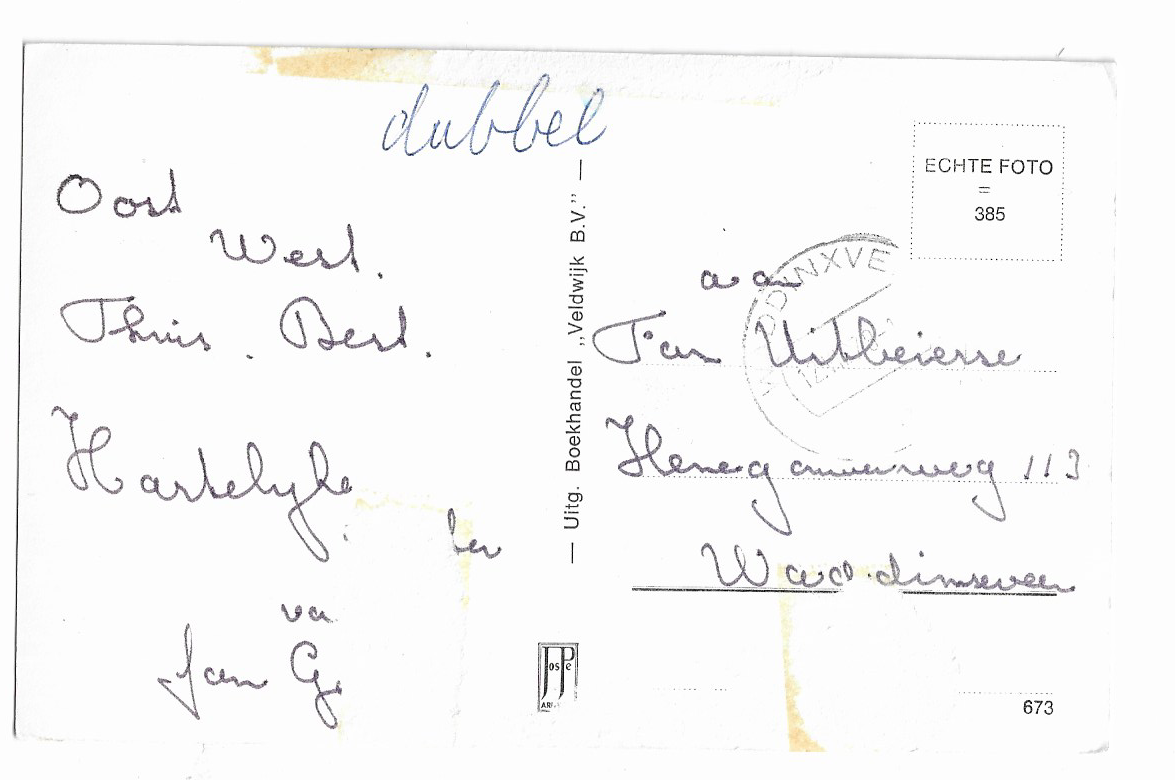 dubbel
Oost
West.
Thuis. Best.
Hartelyke
va
Jan G.
— Uitg. Boekhandel „Veldwijk B.V.” —
ECHTE FOTO
=
385
DDINXVE
aan
Fam Uitbeierse
Henegouwerweg 113
Waddinxveen
JosPe
673